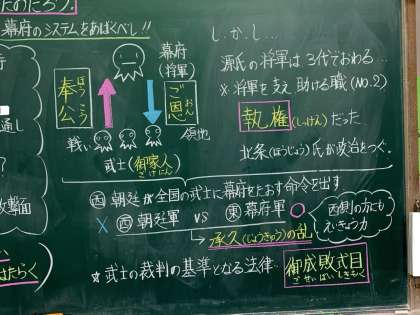 たのだろう。
幕府のシステムをあばくべし!!
通し
攻撃面
はたらく
奉公
ほうこう
幕府
(将軍)
ご恩
おん
戦い
領地
武士(御家人)
ごけにん
しかし…
源氏の将軍は3代でおわる…
※将軍を支え助ける職(NO.2)
執権(しっけん)だった
北条(ほうじょう)氏が政治をつぐ。
西 朝廷が全国の武士に幕府をたおす命令を出す
× 西 朝廷軍 VS 東 幕府軍 ○
西側の方にも
えいきょう力
→ 承久(じょうきゅう)の乱
☆武士の裁判の基準となる法律…
御成敗式目
ごせいばいしきもく